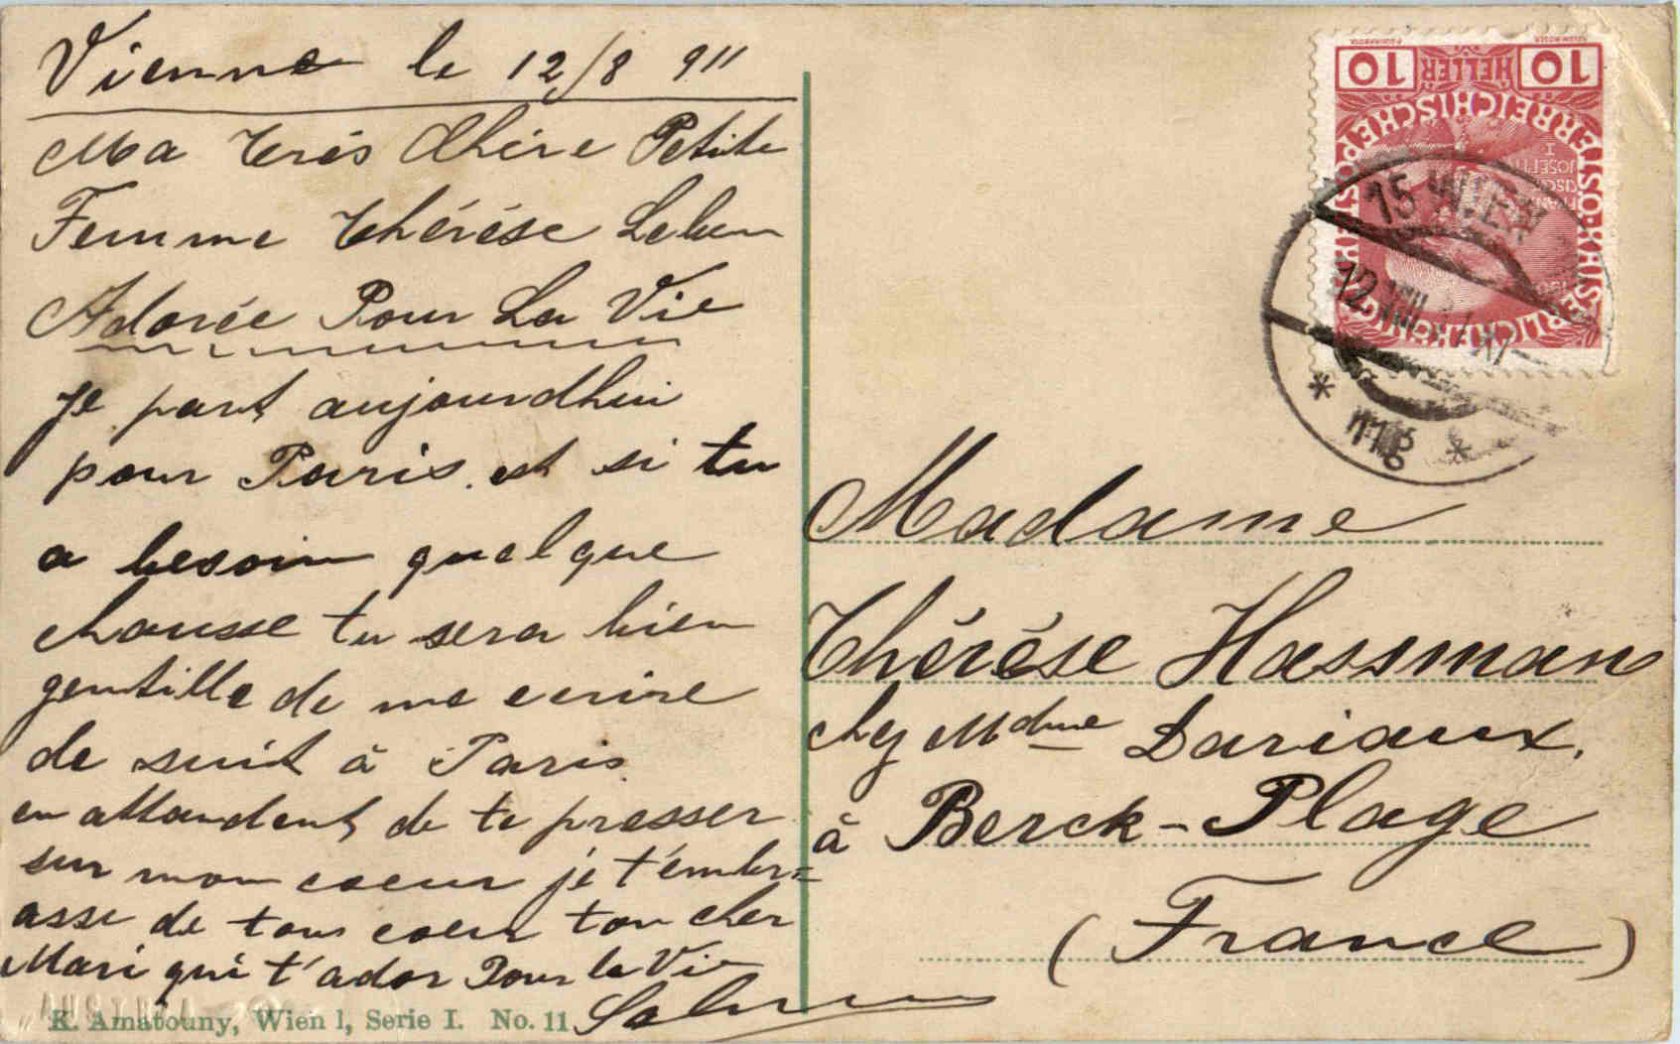 Vienne le 12/8 911
Ma trés Chére Petite
Femme Thérése Leben
Adorée Pour La Vie
je part aujourdhui
pour Paris. et si tu
a besoin quelque
chousse tu sera bien
gentille de me ecrire
de suit à Paris.
en attandent de te presser
sur mon coeur je t'embr=
asse de tous coeur ton cher
Mari qui t'ador Pour la Vie
K. Amatouny, Wien I, Serie I. No. 11
10 HELLER 10
KAISERLICHE KÖNIGL ÖSTERREICHISCHE POST
15 WIEN
12 VIII
* 11g *
Madame
Thérése Hassman
chez Mdme Dariaux,
à Berck-Plage
(France)